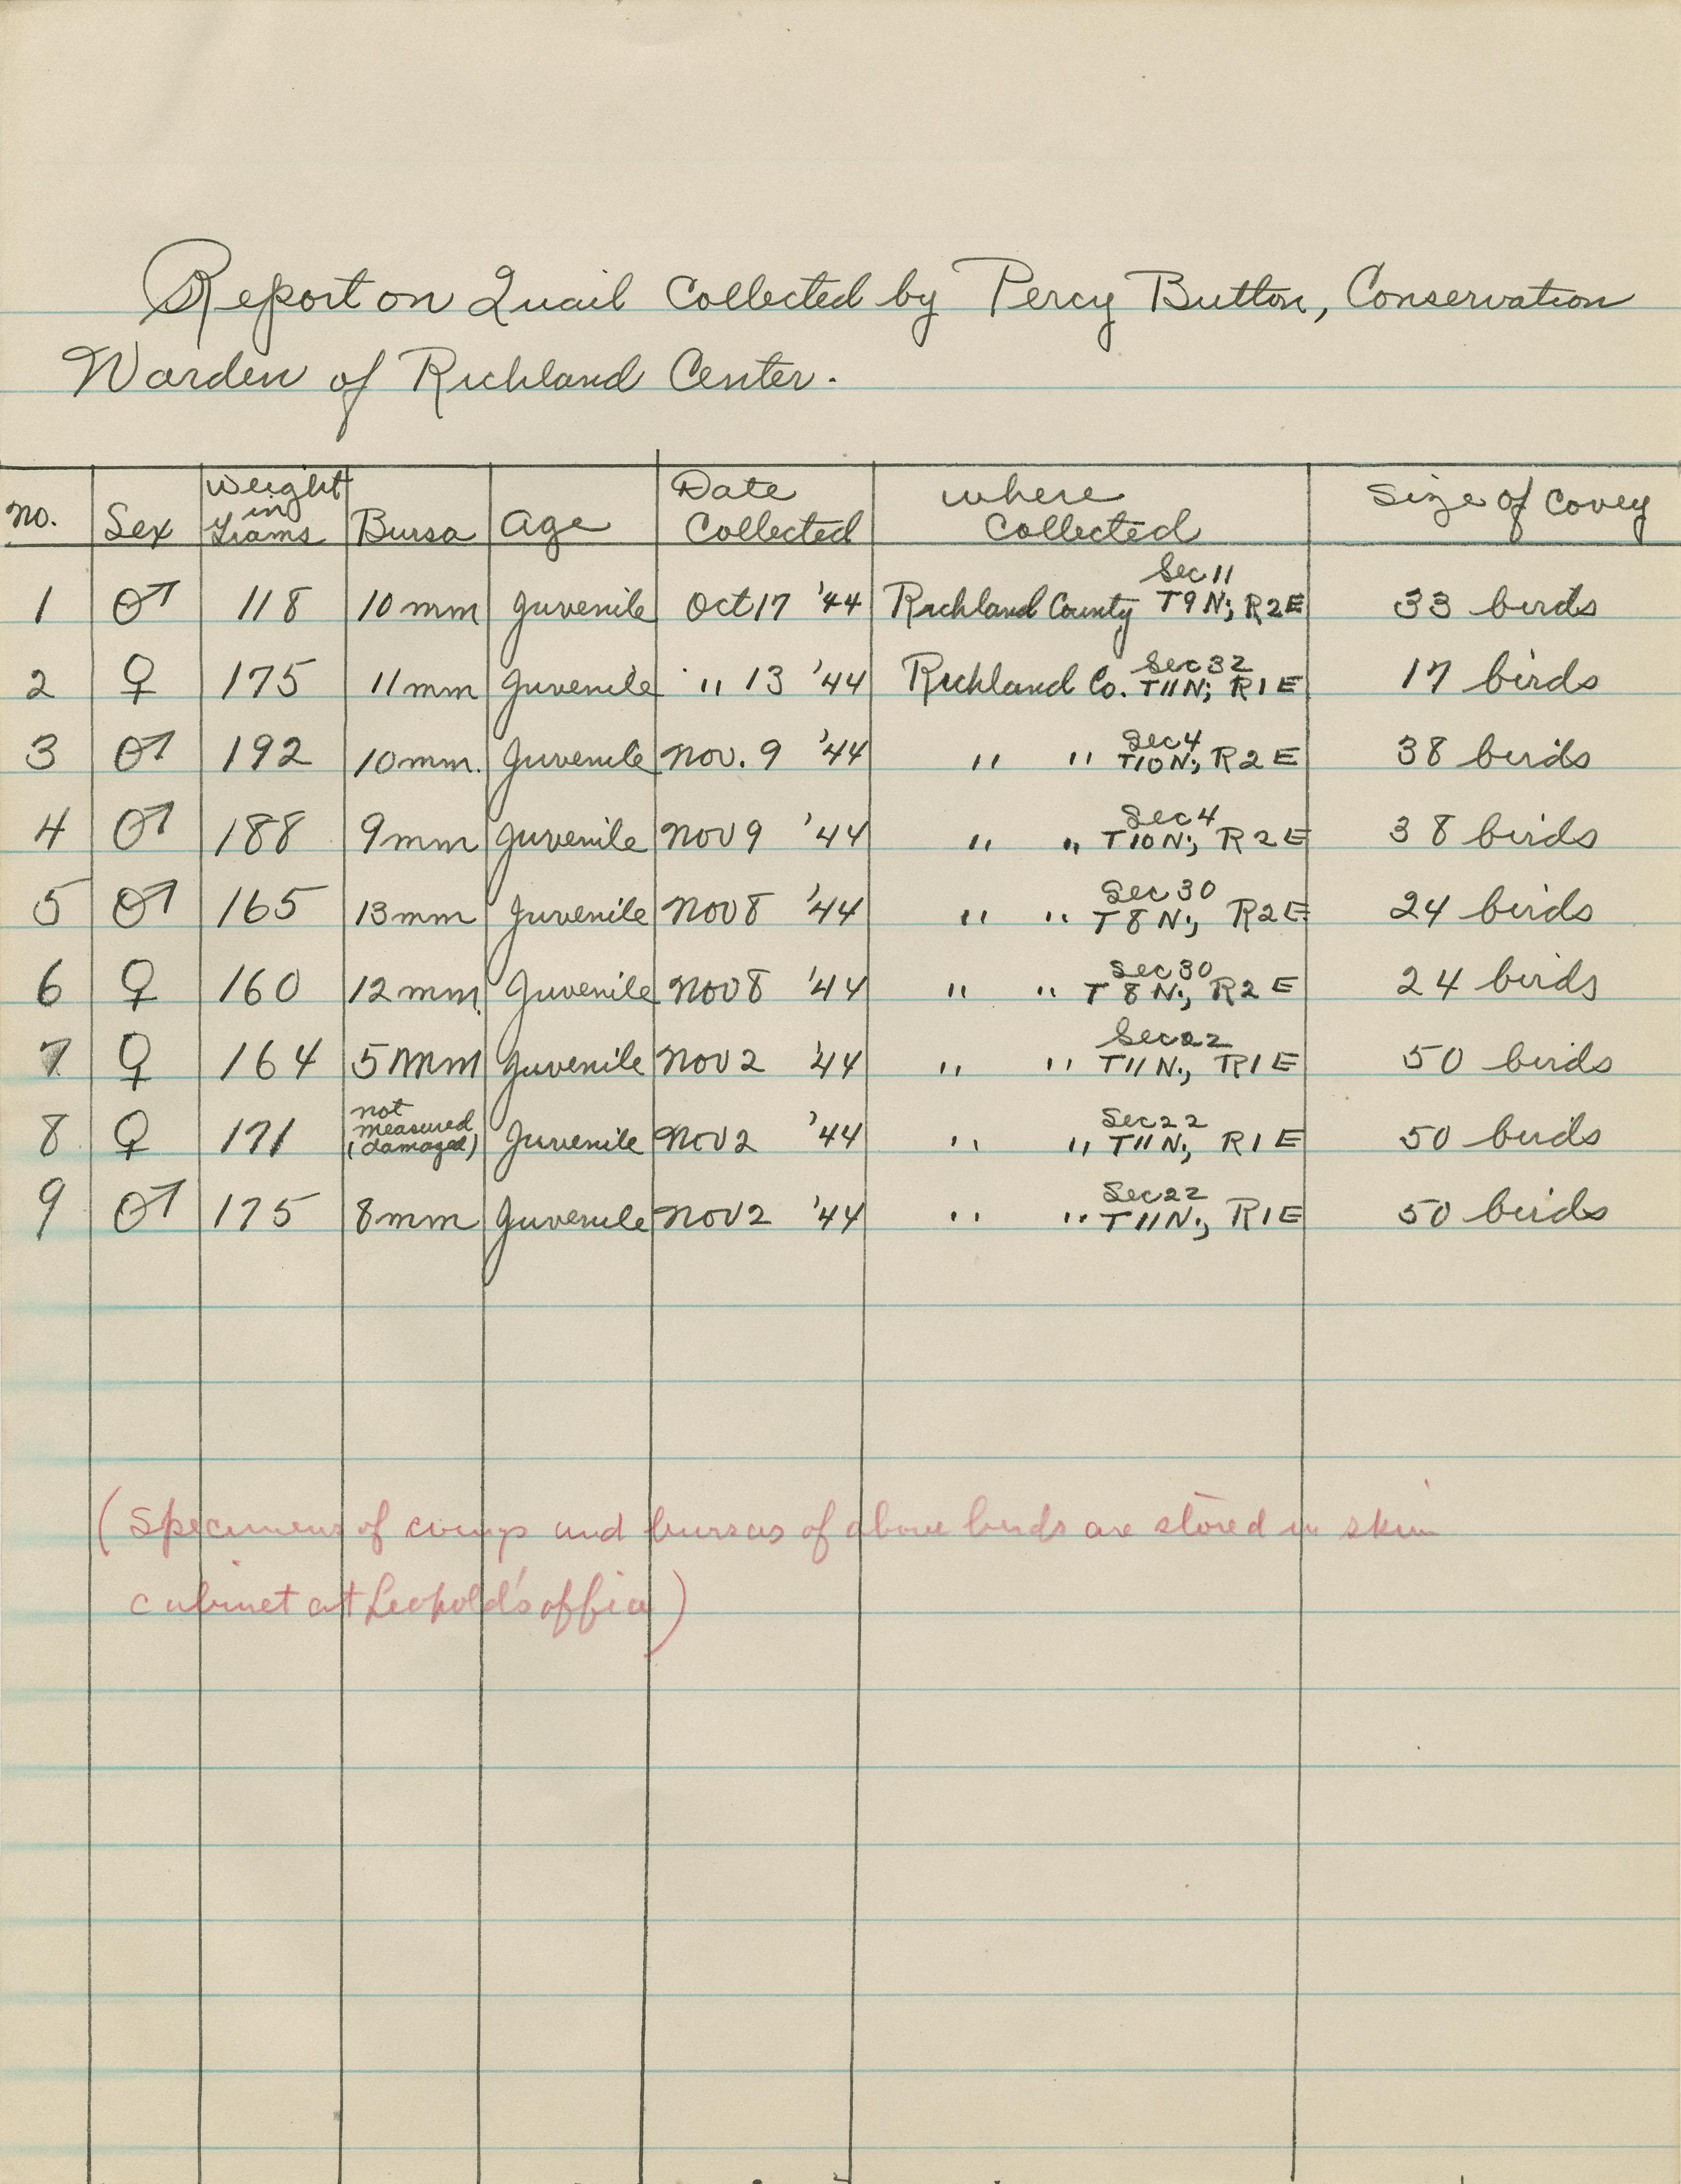 Report on Quail Collected by Percy Button, Conservation
Warden of Richland Center.
No. Sex Weight in Grams Bursa Age Date Collected Where Collected Size of Covey
1 ♂ 118 10 mm Juvenile Oct 17 '44 Richland County Sec 11 T9N; R2E 33 birds
2 ♀ 175 11 mm Juvenile " 13 '44 Richland Co. Sec 32 T11N; R1E 17 birds
3 ♂ 192 10 mm. Juvenile Nov. 9 '44 " " Sec 4 T10N; R2E 38 birds
4 ♂ 188 9 mm Juvenile Nov 9 '44 " " Sec 4 T10N; R2E 38 birds
5 ♂ 165 13 mm Juvenile Nov 8 '44 " " Sec 30 T8N; R2E 24 birds
6 ♀ 160 12 mm. Juvenile Nov 8 '44 " " Sec 30 T8N; R2E 24 birds
7 ♀ 164 5 mm Juvenile Nov 2 '44 " " Sec 22 T11N; R1E 50 birds
8 ♀ 171 not measured (damaged) Juvenile Nov 2 '44 " " Sec 22 T11N; R1E 50 birds
9 ♂ 175 8 mm Juvenile Nov 2 '44 " " Sec 22 T11N; R1E 50 birds
(Specimens of wings and bursas of above birds are stored in skin
cabinet at Leopold's office)